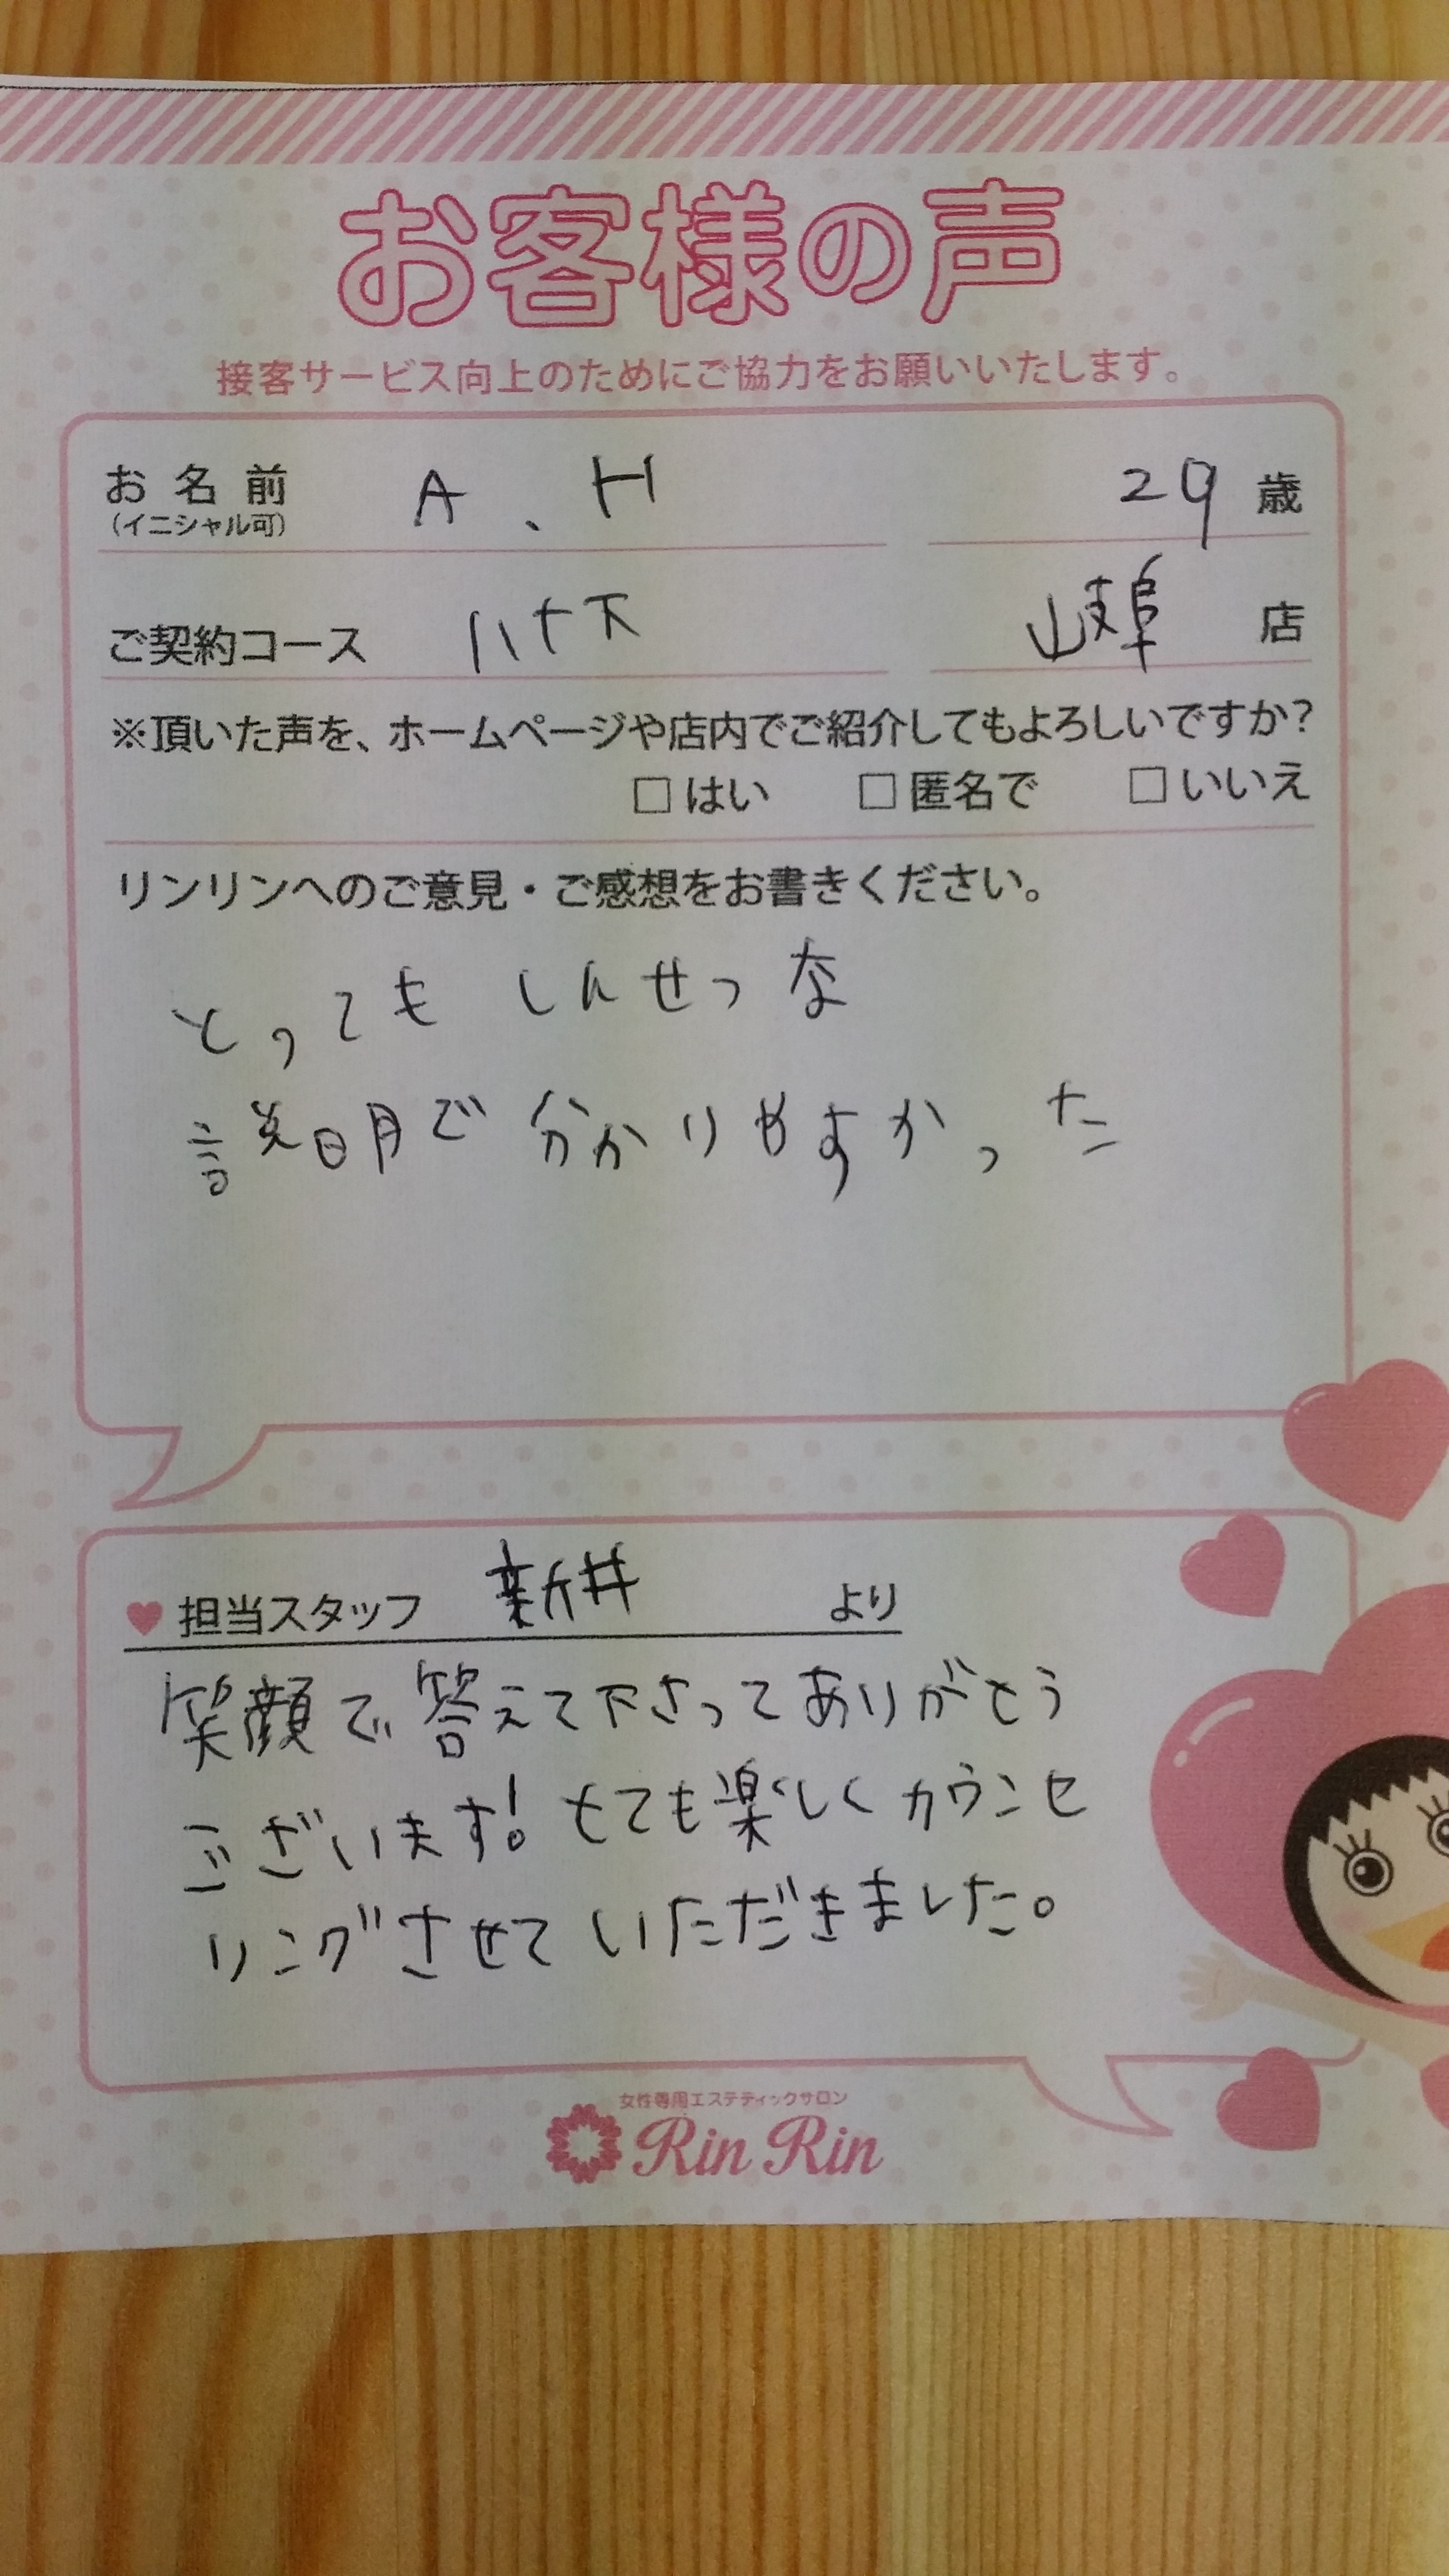 お客様の声
接客サービス向上のためにご協力をお願いいたします。
お名前 A、H 29 歳
(イニシャル可)
ご契約コース 岐阜 店
※頂いた声を、ホームページや店内でご紹介してもよろしいですか?
□はい □匿名で □いいえ
リンリンへのご意見・ご感想をお書きください。
とってもしんせつな
説明で分かりやすかった
♥担当スタッフ 新井 より
笑顔で答えて下さってありがとう
ございます!とても楽しくカウンセ
リングさせていただきました。
女性専用エステティックサロン
Rin Rin